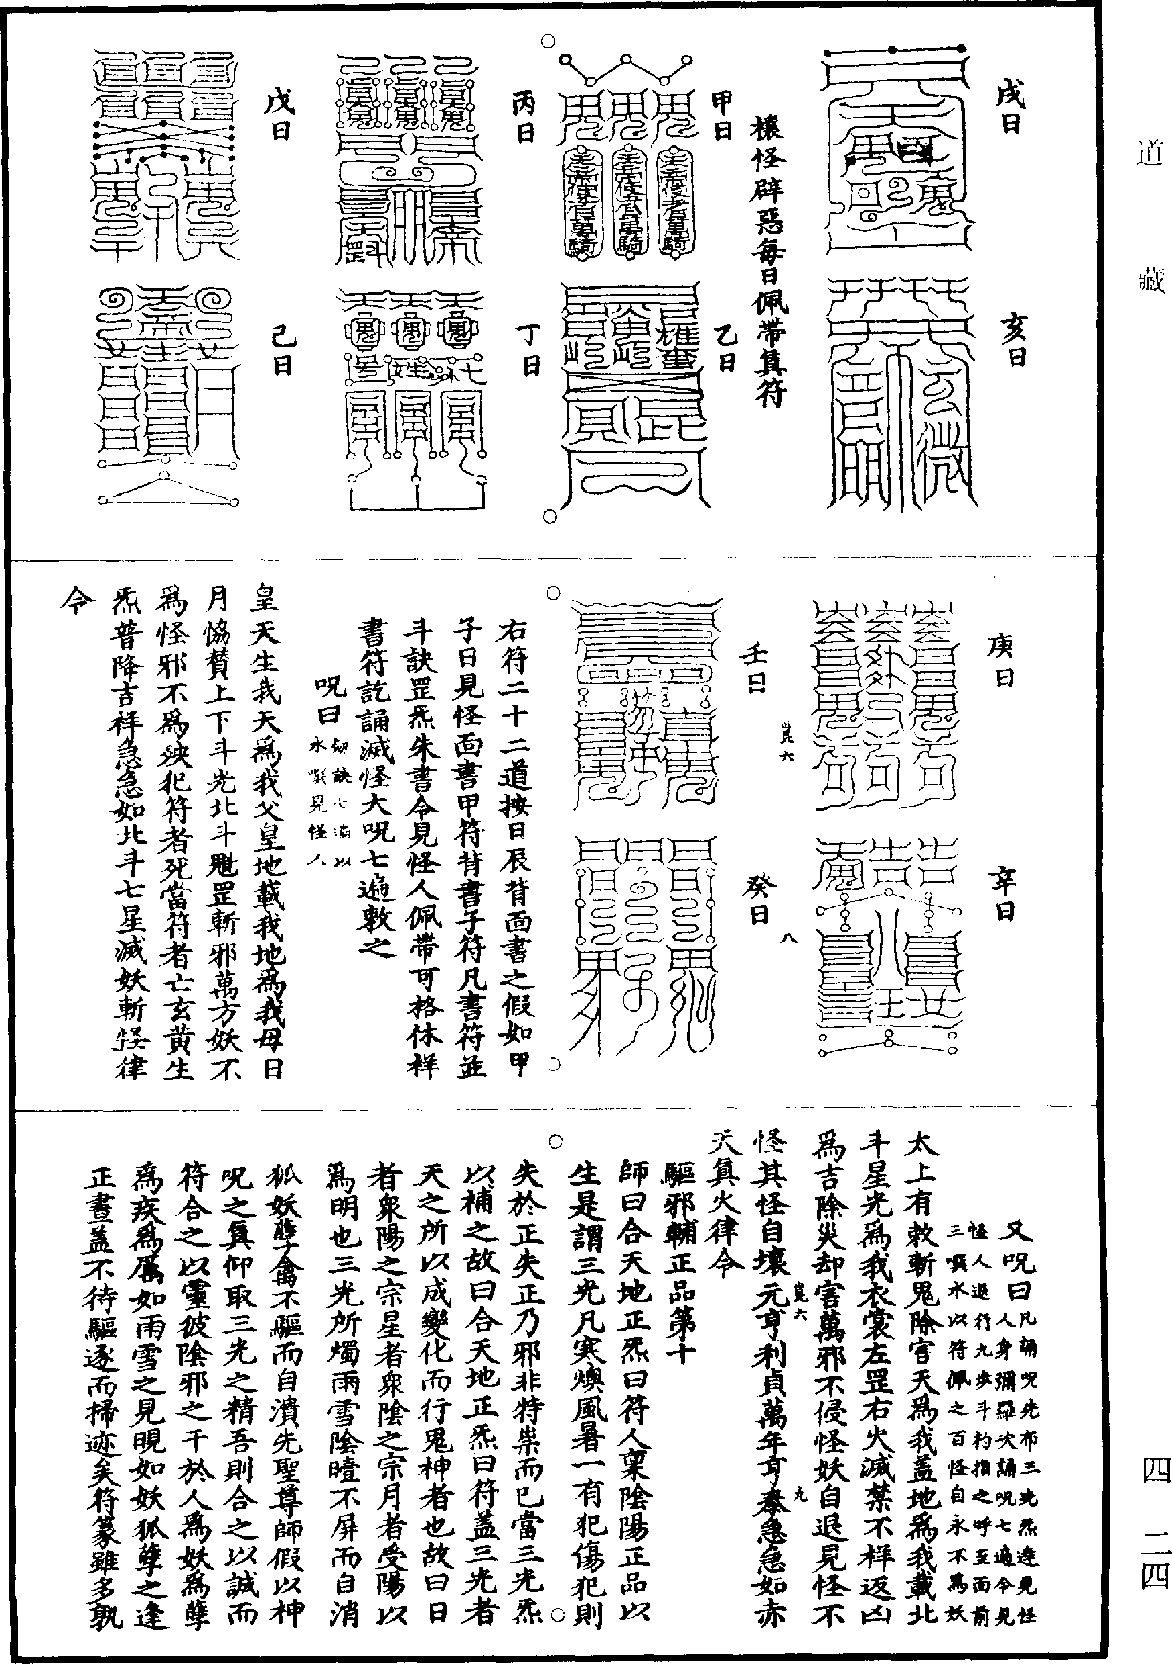 道藏
四
二四
戌日
亥日
禳怪辟惡每日佩帶真符
甲日
乙日
丙日
丁日
戊日
己日
庚日
辛日
崑六
八
壬日
癸日
右符二十二道按日辰背面書之假如甲
子日見怪面書甲符背書子符凡書符並
斗訣罡炁朱書令見怪人佩帶可格休祥
書符訖誦滅怪大呪七遍敕之
呪曰
皇天生我天爲我父皇地載我地爲我母日
月恊贊上下斗光北斗魁罡斬邪萬方妖不
爲怪邪不爲殃犯符者死當符者亡玄黃生
炁普降吉祥急急如北斗七星滅妖斬怪律
令
又呪曰凡誦呪先布三光炁遶見怪
人身彌羅次誦呪七遍令見
怪人退行九步斗杓指之呼至面前
三噀水以符佩之百怪自永不爲妖
太上有敕斬鬼除害天爲我蓋地爲我載北
斗星光爲我衣裳左罡右火滅禁不祥返凶
爲吉除災却害萬邪不侵怪妖自退見怪不
怪其怪自壞元亨利貞萬年亨泰急急如赤
天真火律令
崑六
九
驅邪輔正品第十
師曰合天地正炁曰符人稟陰陽正品以
生是謂三光凡寒燠風暑一有犯傷犯則
失於正失正乃邪非特祟而已當三光炁
以補之故曰合天地正炁曰符蓋三光者
天之所以成變化而行鬼神者也故曰日
者衆陽之宗星者衆陰之宗月者受陽以
爲明也三光所燭雨雪陰曀不屏而自消
狐妖孽禽不驅而自潰先聖尊師假以神
呪之真仰取三光之精吾則合之以誠而
符合之以靈彼陰邪之干於人爲妖爲孽
爲疾爲厲如雨雪之見晛如妖狐孽之逢
正晝蓋不待驅逐而掃迹矣符篆雖多孰